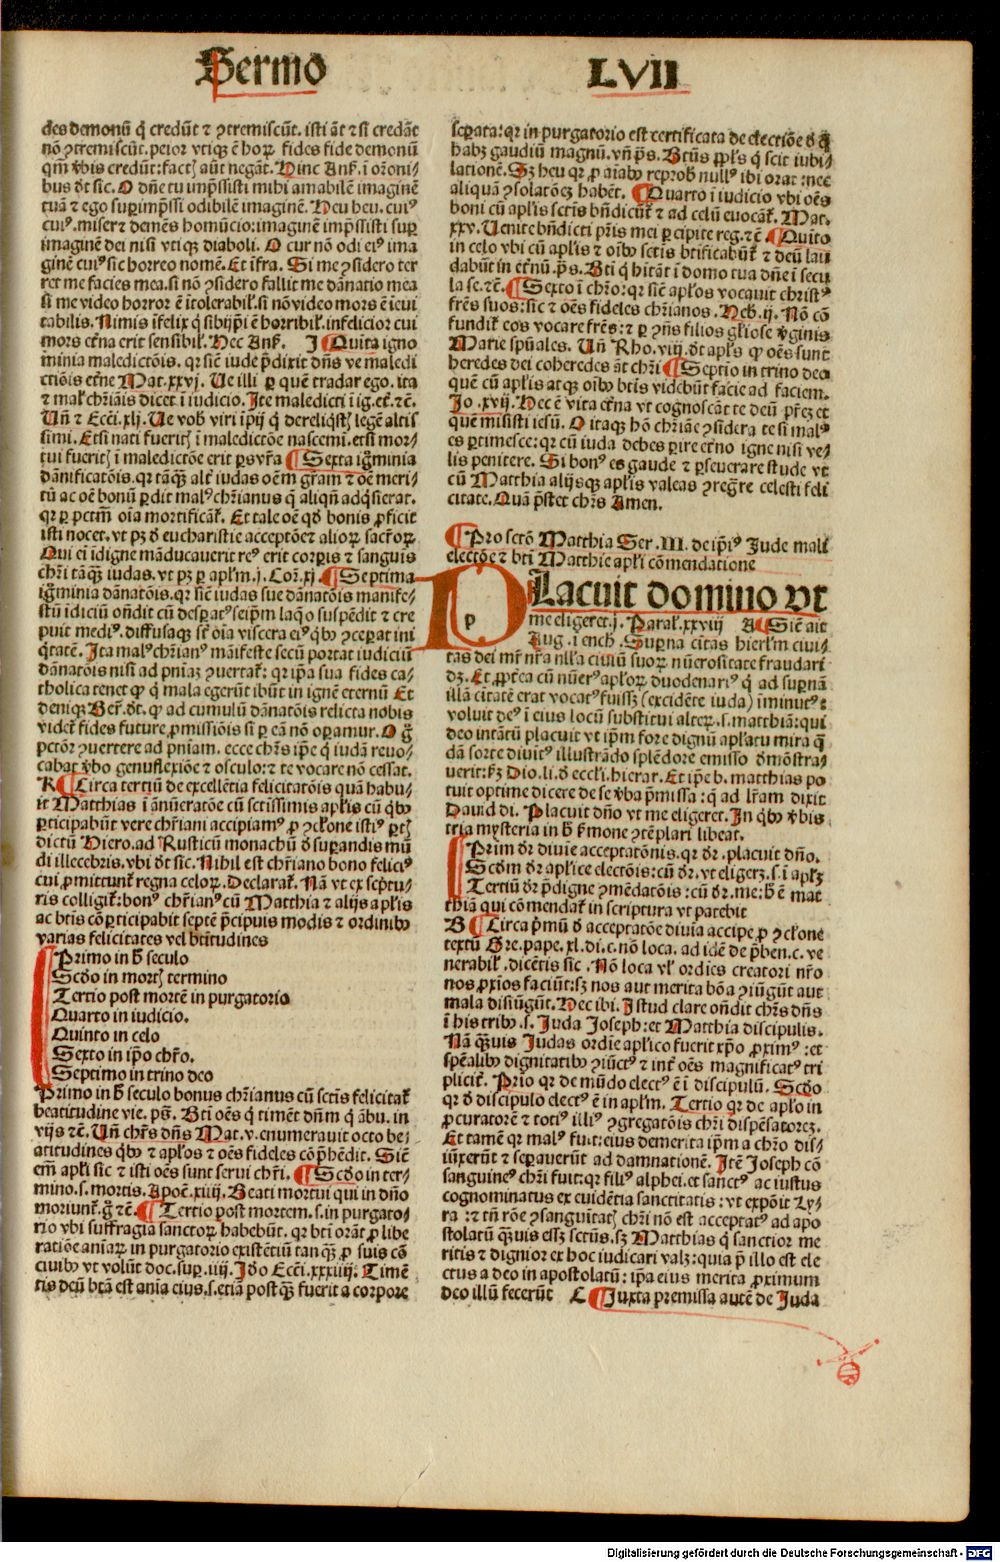 Sermo LVII
des demonū q̇ credūt ⁊ ꝯtremiscūt. isti āt ⁊ si credāt
nō ꝯtremiscūt. peior vtiqꝫ ē hoꝝ fides fide demonū
qm̄ v̓bis credūt: fact aūt negāt. Hinc Anſ. ī or̄oni⸗
bus dt̄ sic. O dn̄e tu imp̄ssisti mihi amabilē imaginē
tuā ⁊ ego suꝑimp̄ssi odibilē imaginē. Heu heu. cuiꝰ
cuiꝰ. miser ⁊ demēs homūcio: imaginē imp̄ssisti suꝑ
imaginē dei nisi vtiqꝫ diaboli. O cur nō odi eiꝰ ima
ginē cuiꝰ sic horreo nomē. Et īfra. Si me ꝯsidero ter
ret me facies mea. si nō ꝯsidero fallit me dānatio mea
si me video horror ē ītolerabil̓. si nō video mors ē ieui
tabilis. Nimis īfelix q̇ sibijp̄i ē horribil̓. infelicior cui
mors et̄na erit sensibil̓. Hec Anſ. I Quīta igno
minia maledictōis. qr sic̄ iude p̄dixit dn̄s ve maledi
ctiōis et̄ne Mat. xxvj. Ve illi ꝑ quē tradar ego. ita
⁊ mal̓ chr̄iāis dicet ī iudicio. Ite maledicti ī ig. et̄. ⁊c̄.
Uñ ⁊ Ecc̄i. xlj. Ue vob̓ viri īpij q̇ dereliq̄st legē altis
simi. Et si nati fuerit ī maledictōe nascemī. et si mor⸗
tui fuerit ī maledictōe erit ꝑs vr̄a Sexta ig̓minia
dānificatōis. qr tāqꝫ alt̓ iudas oēm gr̄am ⁊ oē meri⸗
tū ac oē bonū ꝑdit malꝰ chr̄ianus q̇ aliqn̄ adq̇sierat.
qr ꝑ pctm̄ oīa mortificāt̓. Et tale oē qd̓ bonis ꝓficit
isti nocet. vt pꝫ d̓ eucharistie acceptōe ⁊ alioꝝ sacr̄oꝝ
Qui eī īdigne māducauerit reꝰ erit corꝑis ⁊ sanguis
chr̄i tāqꝫ iudas. vt pꝫ ꝑ apl̄m. j. Cor̄. xj. Septima
ig̓minia dānatōis. qr sic̄ iudas sue dānatōis manife⸗
stū īdiciū on̄dit cū desꝑatꝰ seip̄m laq̓o suspēdit ⁊ cre
puit mediꝰ. diffusaqꝫ st̄ oīa viscera eiꝰ q̇bꝰ ꝯceꝑat ini
q̇tatē. Ita malꝰ chr̄ianꝰ māifeste secū portat iudiciū
dānatōis nisi ad pn̄iaꝫ ꝯuertat̓: qr ip̄a sua fides ca⸗
tholica tenet ꝙ q̇ mala egerūt ibūt in ignē eternū Et
deniqꝫ Ber̄. dt̄. ꝙ ad cumulū dānatōis relicta nobis
videt̓ fides future ꝓmissiōis si ꝑ eā nō oꝑamur. O g̓
pctōr ꝯuertere ad pn̄iam. ecce chr̄s ip̄e q̇ iudā reuo⸗
cabat v̓bo genuflexiōe ⁊ osculo: ⁊ te vocare nō cessat.
K Circa tertiū de excellētia felicitatōis quā habu⸗
it Matthias ī ānūeratōe cū sctissimis apl̄is cū q̇bꝰ
ꝑticipabūt vere chr̄iani accipiamꝰ ꝓ ꝯclōne istiꝰ ꝑt
dictū Hiero. ad Rusticū monachū d̓ suꝑandis mū
di illecebris. vbi dt̄ sic. Nihil est chr̄iano bono feliciꝰ
cui ꝓmittunt̓ regna celoꝝ. Declarat̓. Nā vt ex scptu⸗
ris colligit̓: bonꝰ chr̄ianꝰ cū Matthia ⁊ alijs apl̄is
ac bt̄is cōꝑticipabit septē p̄cipuis modis ⁊ ordinibꝰ
varias felicitates vel bt̄itudines
Primo in h̓ seculo
Scd̓o in mort termino
Tertio post mortē in purgatorio
Quarto in iudicio.
Quinto in celo
Sexto in ip̄o chr̄o.
Septimo in trino deo
Primo in h̓ seculo bonus chr̄ianus cū sctis̄ felicitat̓
beatitudine vie. ps̄. Bt̄i oēs q̇ timēt dn̄m q̇ ābu. in
vijs ⁊c̄. Uñ chr̄s dn̄s Mat. v. enumerauit octo be⸗
atitudines q̇bꝰ ⁊ apl̄os ⁊ oēs fideles cōp̄hēdit. Sic̄
em̄ apl̄i sic ⁊ isti oēs sunt serui chr̄i. Scd̓o in ter⸗
mino. s. mortis. Apoc̄. xiiij. Beati mortui qui in dn̄o
moriunt̓. g̓ ⁊c̄. Tertio post mortem. s. in purgato⸗
rio vbi suffragia sanctoꝝ habebūt. qr bt̄i orāt ꝓ libe
ratiōe aīaꝝ in purgatorio existētiū tanqꝫ ꝓ suis cō
ciuibꝰ vt volūt doc. suꝑ. iiij. Id̓o Ecc̄i. xxxiiij. Timē
tis deū btā est anīa eius. s. etiā postqꝫ fuerit a corpore
seꝑata: qr in purgatorio est certificata de electiōe d̓ q̇
habꝫ gaudiū magnū. vñ ps̄. Bt̄us ppl̄s q̇ scit iubi⸗
lationē. Sꝫ heu qr ꝓ aīabꝰ reprob̓ nullꝰ ibi orat: nec
aliquā ꝯsolatōeꝫ habēt. Quarto ī iudicio vbi oēs
boni cū apl̄is sctis̄ bn̄dicūt̓ ⁊ ad celū euocāt̓. Mat.
xxv. Uenite bn̄dicti pr̄is mei ꝑcipite reg. ⁊c̄. Quīto
in celo vbi cū apl̄is ⁊ oībꝰ sctis̄ bt̄ificabūt̓ ⁊ deū lau
dabūt in et̄nū. ps̄. Bt̄i q̇ hītāt ī domo tua dn̄e ī secu
la se. ⁊c̄. Sexto ī chr̄o: qr sic̄ apl̄os vocauit christꝰ
fr̄es suos: sic ⁊ oēs fideles chr̄ianos. Heb̓. ij. Nō cō
fundit̓ eos vocare fr̄es: ⁊ ꝑ ꝯn̄s filios gl̓iose v̓ginis
Marie sp̄uales. Uñ Rho. viij. dt̄ apl̄s ꝙ oēs sunt
heredes dei coheredes āt chr̄i Septio in trino deo
quē cū apl̄is atqꝫ oībꝰ bt̄is videbūt facie ad faciem.
Jo. xvij. Hec ē vita et̄na vt cognoscāt te deū pr̄eꝫ et
quē misisti iesū. O itaqꝫ hō chr̄iāe ꝯsidera te si malꝰ
es ꝑtimesce: qr cū iuda debes ꝑire et̄no igne nisi ve⸗
lis penitere. Si bonꝰ es gaude ⁊ ꝑseuerare stude vt
cū Matthia alijsqꝫ apl̄is valeas ꝯreg̓re celesti feli
citate. Quā p̄stet chr̄s Amen.
Pro sctō Matthia Ser. III. de ip̄iꝰ Jude mali
electōe ⁊ bt̄i Matthie apl̄i cōmendatione
p Lacuit domino vt
me eligeret. j. Paral̓. xxviij A Sic̄ ait
Aug. ī ench̓. Suꝑna cītas hierl̄m ciui⸗
tas dei mr̄ nr̄a nll̓a ciuiū suoꝝ nūerositate fraudari
dꝫ. Et ꝓpt̓ea cū nūerꝰ apl̄oꝝ duodenariꝰ q̇ ad suꝑnā
illā citatē erat vocatꝰ fuissꝫ (excidēte iuda) iminutꝰ:
voluit deꝰ ī eius locū substitui alteꝝ. s. matthiā: qui
deo intātū placuit vt ip̄m fore dignū apl̄atu mira q̄
dā sorte diuitꝰ illustrādo splēdore emisso d̓mōstra⸗
uerit: ẜꝫ Dio. li. d̓ eccl̄i. hierar. Et ip̄e b. matthias po
tuit optime dicere de se v̓ba p̄missa: q̄ ad lr̄am dixit
Dauid di. Placuit dn̄o vt me eligeret. In q̇bꝰ v̓bis
tria mysteria in h̓ ẜmone ꝯtēplari libeat.
Prim̄ dr̄ diuie acceptatōnis. qr dr̄. placuit dn̄o.
Scd̓m dr̄ apl̄ice electōis: cū dr̄. vt eligerꝫ. s. ī apl̄ꝫ
Tertiū dr̄ p̄digne ꝯmēdatōis: cū dr̄. me: h̓ ē mat
thiā qui cōmendat̓ in scriptura vt patebit
B Circa p̄mū d̓ acceptatōe diuia accipe ꝓ ꝯclōne
textū Gre. pape. xl. di. c. nō loca. ad idē de p̄ben. c. ve
nerabil̓. dicētis sic. Nō loca vl̓ ordīes creatori nr̄o
nos ꝓxīos faciūt: sꝫ nos aut merita bōa ꝯiūgūt aut
mala disiūgūt. Hec ibi. Istud clare on̄dit chr̄s dn̄s
ī his tribꝰ. s. Juda Joseph: et Matthia discipulis.
Nā q̄uis Judas ordīe apl̄ico fuerit xp̄o ꝓximꝰ: et
spēalibꝰ dignitatibꝰ ꝯiūctꝰ ⁊ int̓ oēs magnificatꝰ tri
plicit̓. Prīo qr de mūdo electꝰ ē ī discipulū. Scd̓o
qr d̓ discipulo electꝰ ē in apl̄m. Tertio qr de apl̄o in
ꝓcuratorē ⁊ totiꝰ illiꝰ ꝯgregatōis chr̄i dispēsatoreꝫ.
Et tamē qr malꝰ fuit: eius demerita ip̄m a chr̄o dis⸗
iūxerūt ⁊ seꝑauerūt ad damnationē. Itē Joseph cō
sanguineꝰ chr̄i fuit: qr filiꝰ alphei. et sanctꝰ ac iustus
cognominatus ex euidētia sanctitatis: vt expōit Ly⸗
ra: ⁊ tn̄ rōe ꝯsanguītat chr̄i nō est acceptatꝰ ad apo
stolatū q̄uis eēt sctūs. sꝫ Matthias q̇ sanctior me
ritis ⁊ dignior ex hoc iudicari valꝫ: quia p̄ illo est ele
ctus a deo in apostolatū: ip̄a eius merita ꝓximum
deo illū fecerūt C Juxta premissa autē de Juda
Digitalisierung gefördert durch die Deutsche Forschungsgemeinschaft - DFG